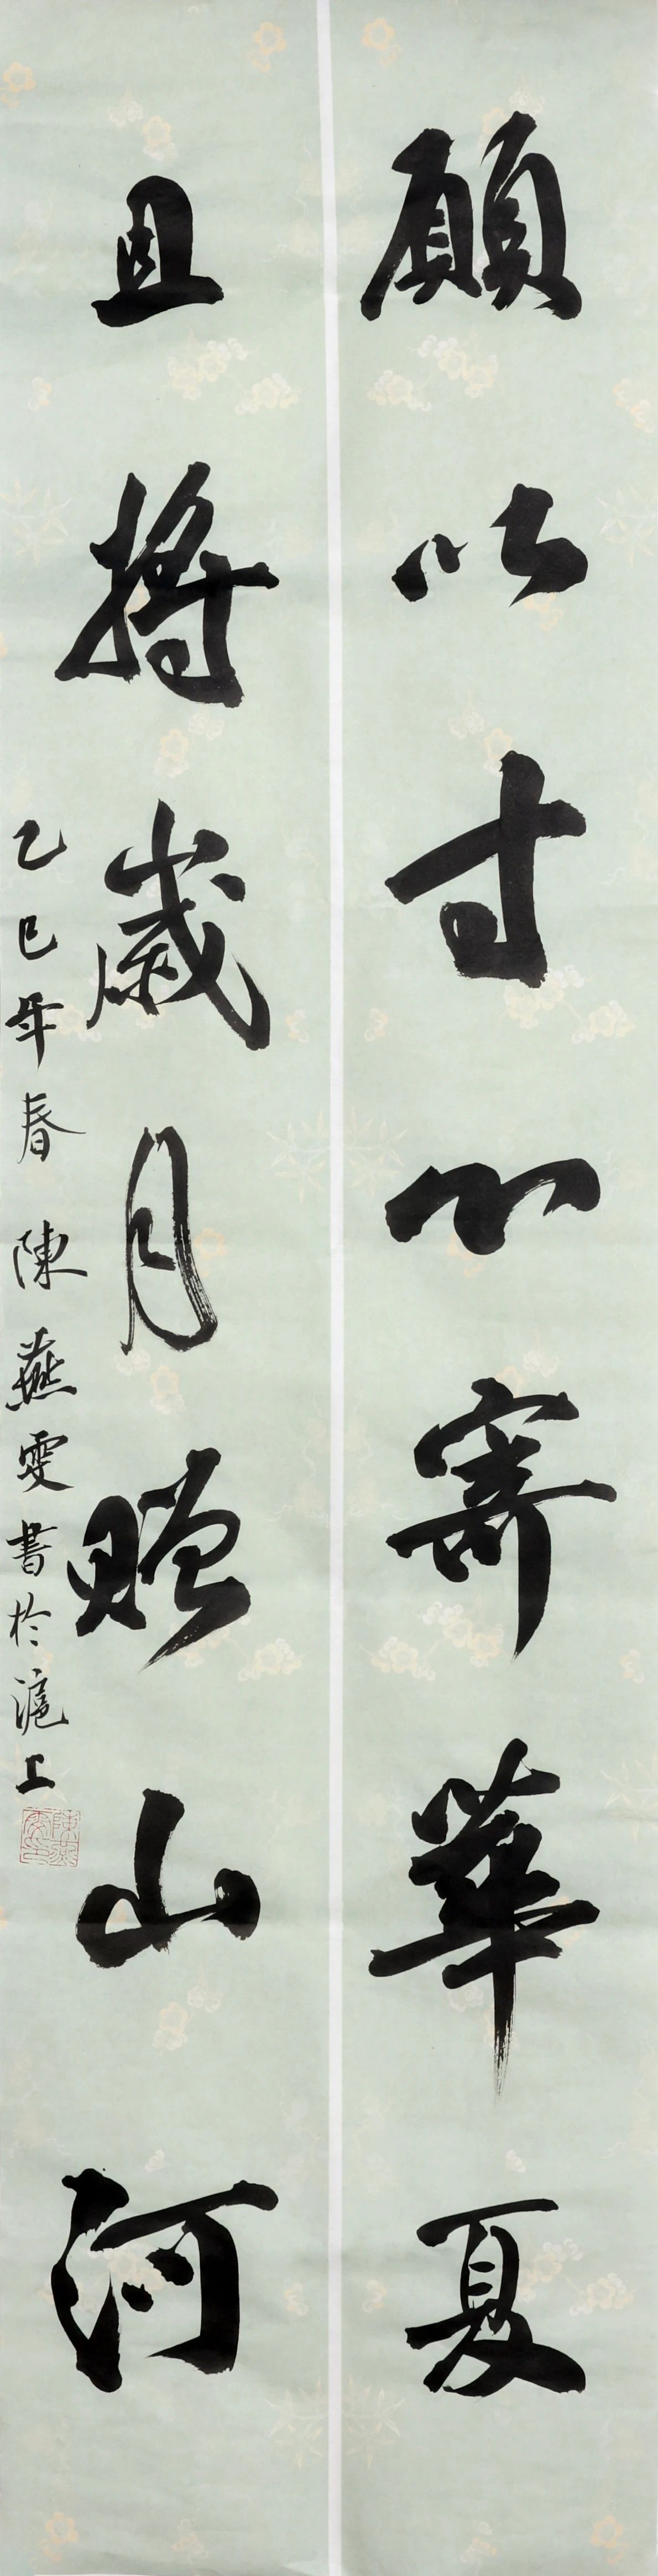 願以寸心寄華夏
且將歲月贈山河
乙巳年春 陳燕雯書於滬上